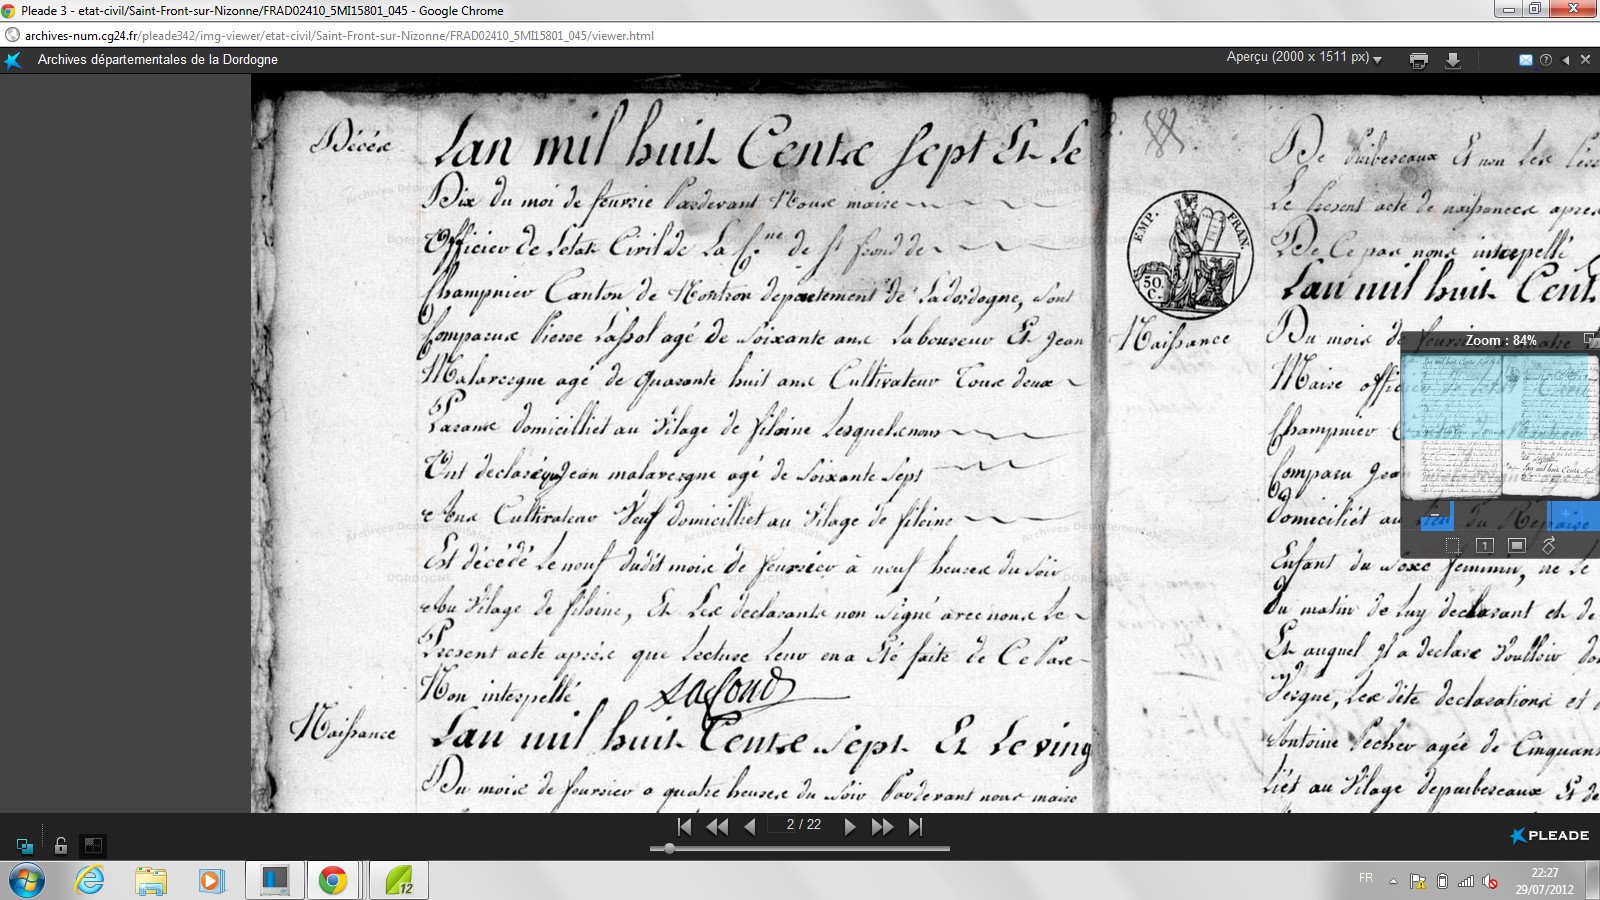 Pleade 3 - etat-civil/Saint-Front-sur-Nizonne/FRAD02410_5MI15801_045 - Google Chrome
archives-num.cg24.fr/pleade342/img-viewer/etat-civil/Saint-Front-sur-Nizonne/FRAD02410_5MI15801_045/viewer.html
Archives départementales de la Dordogne
Aperçu (2000 x 1511 px)
Décés
Lan mil huit Cents sept Et Le
Dix du moi de feuvrie Pardevant Nous maire
Officier de Letat Civil de La C.ne de St frond de
Champnier Canton de Nontron departement de Ladordogne, sont
Comparus Pierre Lassol agé de soixante ans Laboureur Et Jean
Malavergne agé de quarante huit ans Cultivateur Tous deux
Parans domicilliet au Vilage de Lesquels nous
Ont declaré que Jean malavergne agé de soixante sept
Ans Cultivateur Veuf domicilliet au Vilage de
Est décédé Le neuf dudit mois de feuvrier à neuf heures du soir
Au Vilage de Et Les declarants non signé avec nous Le
Present acte aprés que Lecture Leur en a Eté faite de Ce Par
Nous interpellé
Lafond
Naissance
Lan mil huit Cents sept Et Le ving
Du mois de feuvrier a quatre heures du soir Pardevant nous maire
EMP. FRAN.
50. C.
Naissance
De Et non Les
Le Present acte de naissances apres
De Ce par nous interpellé
Lan mil huit Cent
Du mois de
Maire offi
Champnier
Comparu Jean
domiciliét au du Repaire
Enfant du sexe feminin, né le
Du matin de Luy declarant et de
Et auquel Il a declaré Voulloir do
Les dite declarations et
Antoine Pecher agée de Cinquan
liés au Vilage Et de
Zoom : 84%
1
2 / 22
PLEADE
12
FR
22:27
29/07/2012